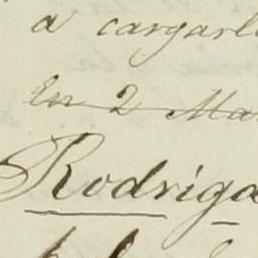 a cargarl
En 2 Ma
Rodriga